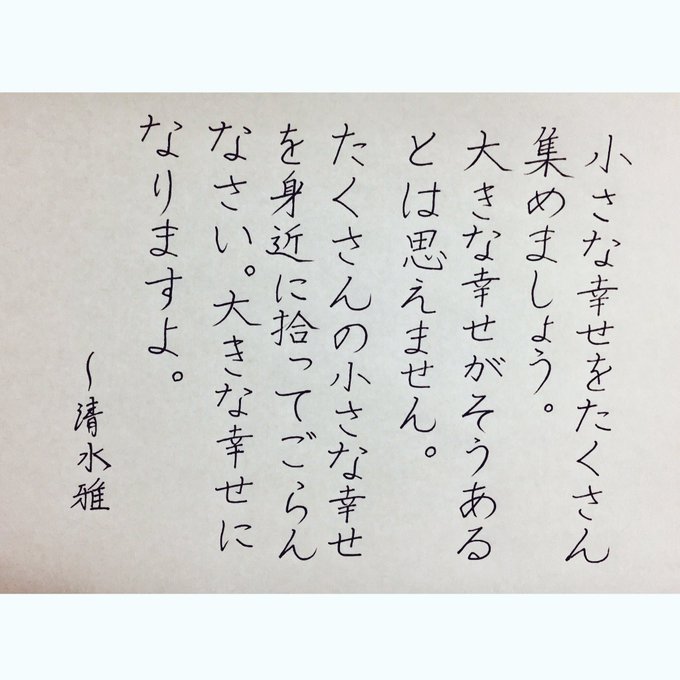 小さな幸せをたくさん
集めましょう。
大きな幸せがそうある
とは思えません。
たくさんの小さな幸せ
を身近に拾ってごらん
なさい。大きな幸せに
なりますよ。
〜清水雅